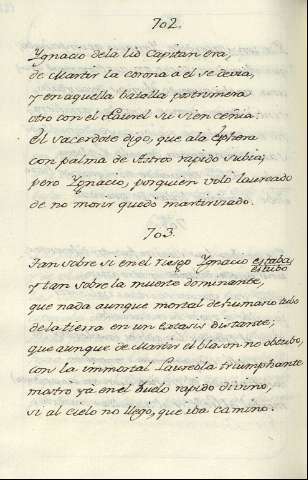 702.
Ygnacio dela lid Capitan era,
de Martir la corona à el se devia,
y en aquella batalla postrimera
otro con el Laurel su sien ceñia:
El sacerdote digo, que ala Esphera
con palma de Astro rapido subia;
pero Ygnacio, porquien voló laureado
de no morir quedó martirizado.
703.
Tan sobre si en el riesgo Ygnacio estaba,
estubo
y tan sobre la muerte dominante,
que nada aunque mortal de humano tubo
de la tierra en un extasis distante;
que aunque de Martir el blason no obtubo,
con la immortal Laureola triumphante
mostró yá en el buelo rapido divino,
si al cielo no llegó, que iba camino.